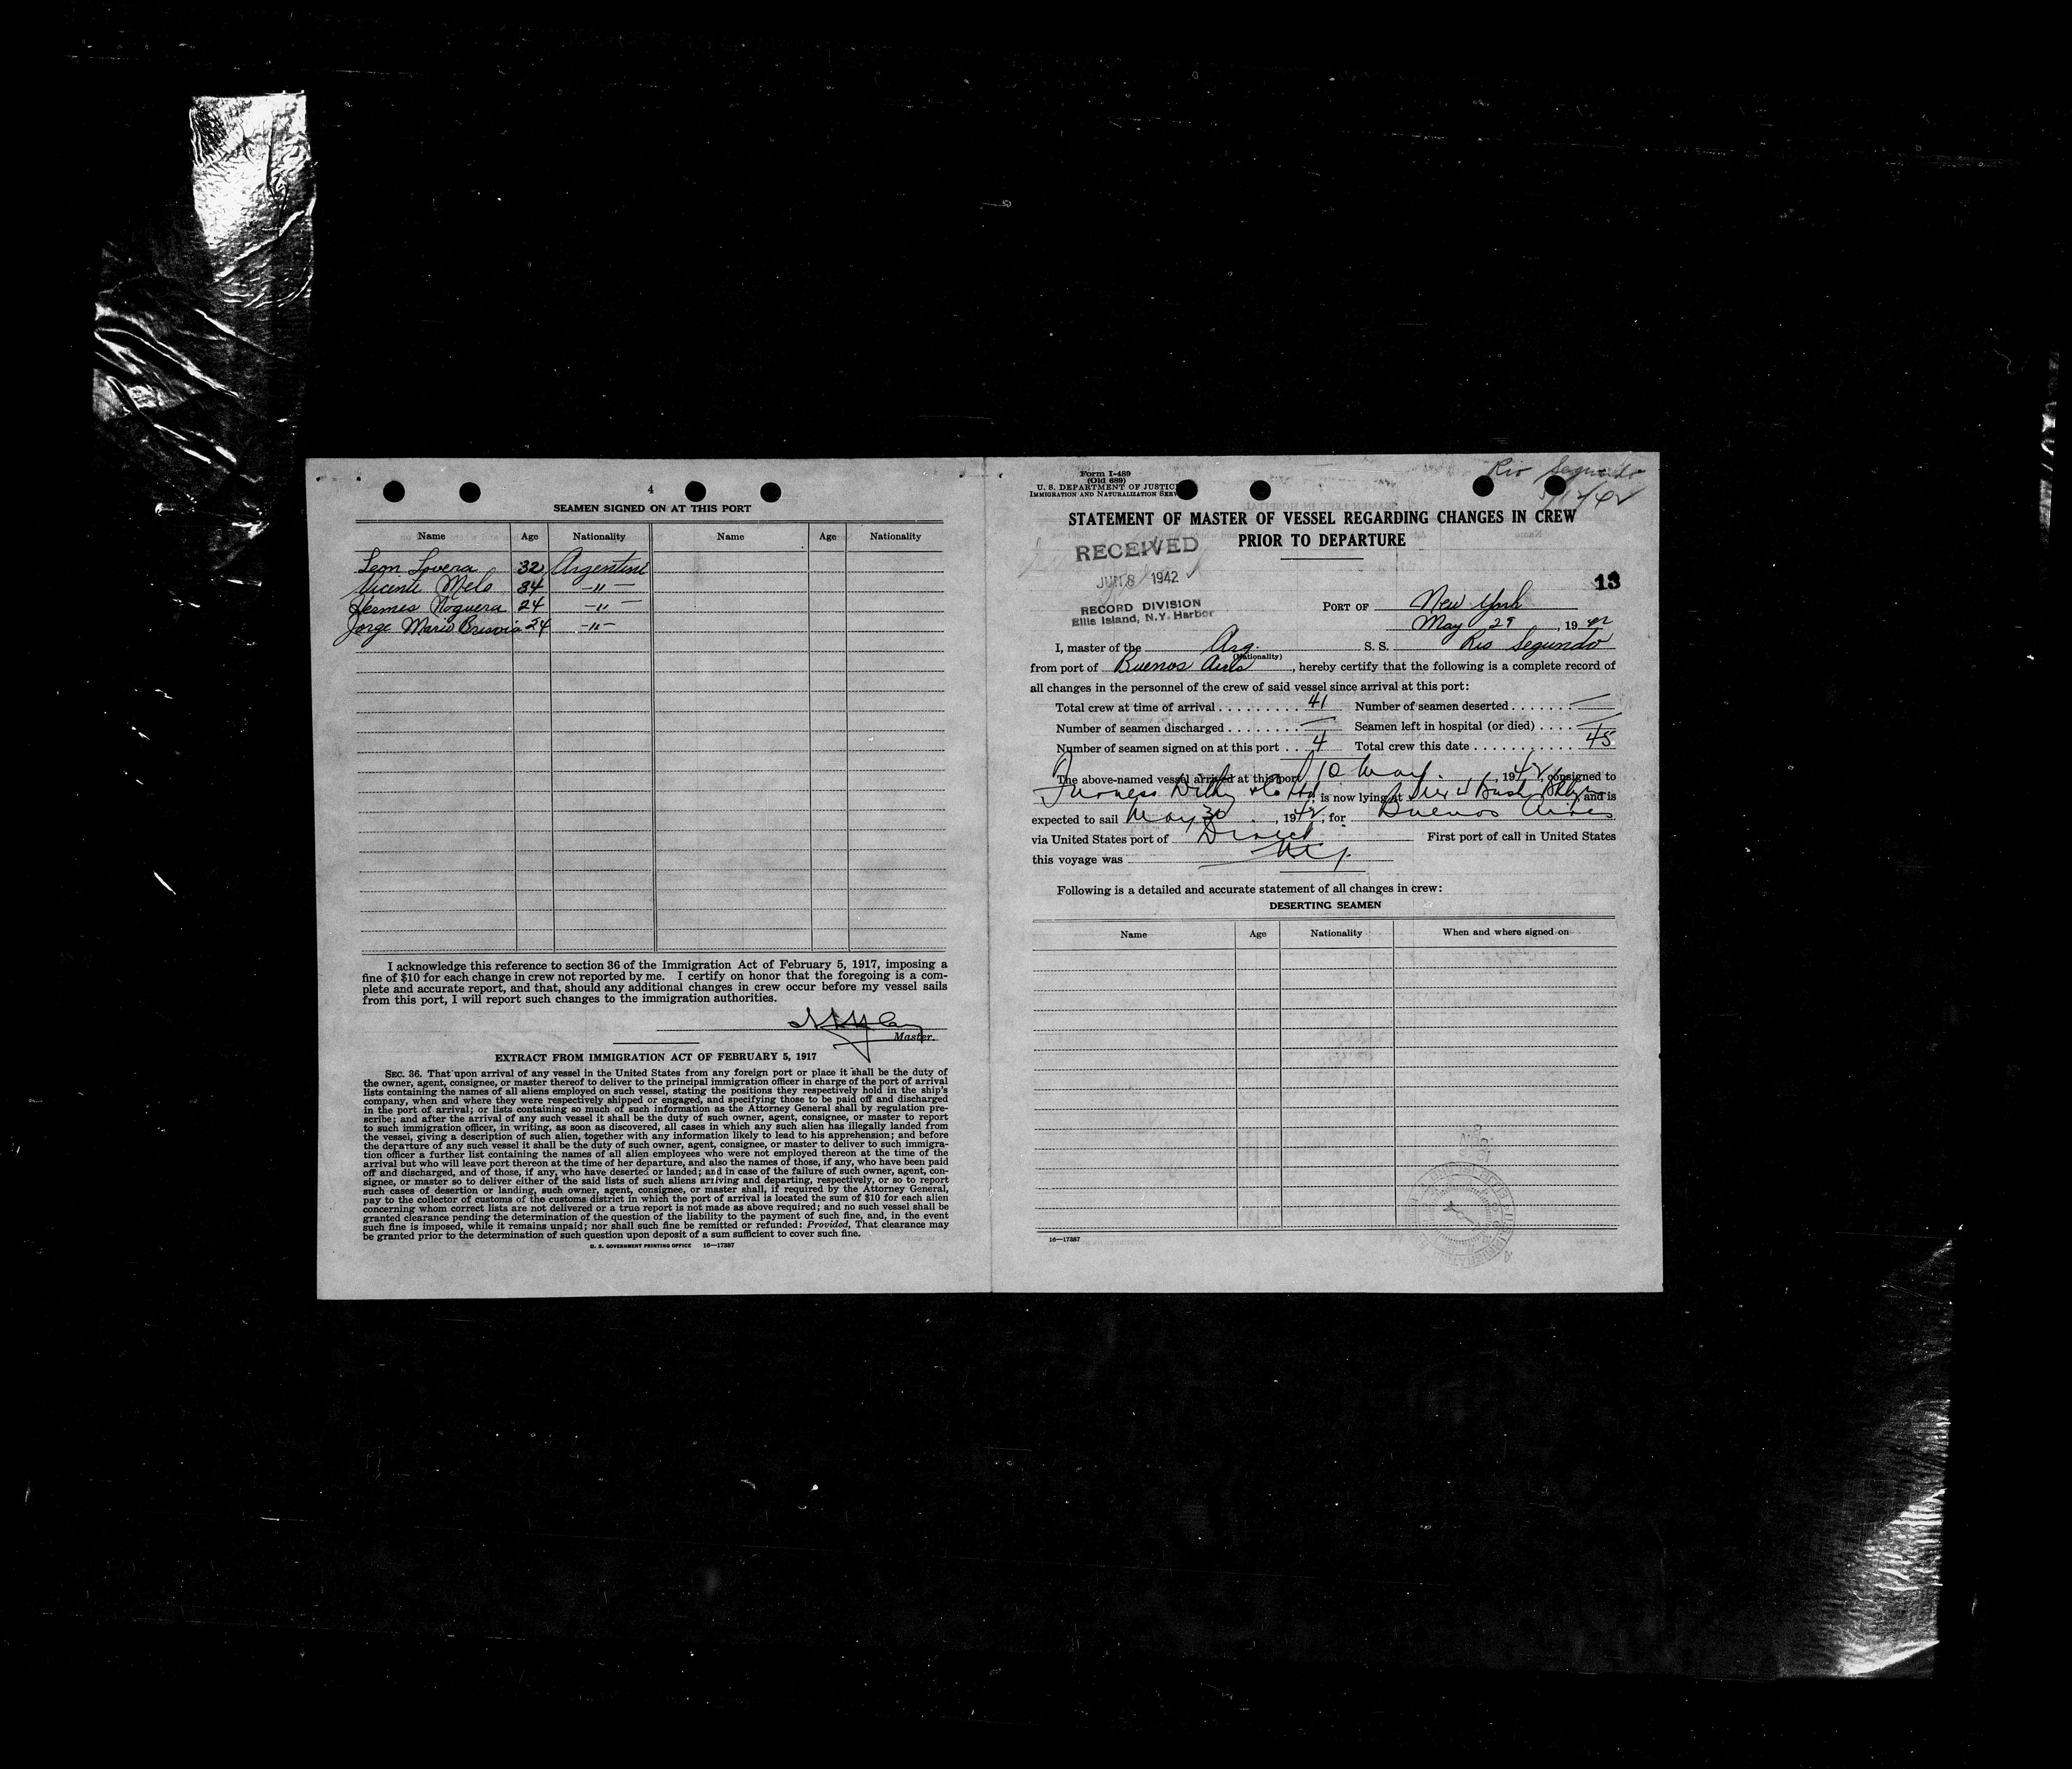 4
SEAMEN SIGNED ON AT THIS PORT
Name Age Nationality Name Age Nationality
Leon Lovera 32 Argentine
Vicente Melo 34 -"-
Hermes Noguera 24 -"-
Jorge Mario 24 -"-
I acknowledge this reference to section 36 of the Immigration Act of February 5, 1917, imposing a
fine of $10 for each change in crew not reported by me. I certify on honor that the foregoing is a com-
plete and accurate report, and that, should any additional changes in crew occur before my vessel sails
from this port, I will report such changes to the immigration authorities.
Master.
EXTRACT FROM IMMIGRATION ACT OF FEBRUARY 5, 1917
SEC. 36. That upon arrival of any vessel in the United States from any foreign port or place it shall be the duty of
the owner, agent, consignee, or master thereof to deliver to the principal immigration officer in charge of the port of arrival
lists containing the names of all aliens employed on such vessel, stating the positions they respectively hold in the ship's
company, when and where they were respectively shipped or engaged, and specifying those to be paid off and discharged
in the port of arrival; or lists containing so much of such information as the Attorney General shall by regulation pre-
scribe; and after the arrival of any such vessel it shall be the duty of such owner, agent, consignee, or master to report
to such immigration officer, in writing, as soon as discovered, all cases in which any such alien has illegally landed from
the vessel, giving a description of such alien, together with any information likely to lead to his apprehension; and before
the departure of any such vessel it shall be the duty of such owner, agent, consignee, or master to deliver to such immigra-
tion officer a further list containing the names of all alien employees who were not employed thereon at the time of the
arrival but who will leave port thereon at the time of her departure, and also the names of those, if any, who have been paid
off and discharged, and of those, if any, who have deserted or landed; and in case of the failure of such owner, agent, con-
signee, or master so to deliver either of the said lists of such aliens arriving and departing, respectively, or so to report
such cases of desertion or landing, such owner, agent, consignee, or master shall, if required by the Attorney General,
pay to the collector of customs of the customs district in which the port of arrival is located the sum of $10 for each alien
concerning whom correct lists are not delivered or a true report is not made as above required; and no such vessel shall be
granted clearance pending the determination of the question of the liability to the payment of such fine, and, in the event
such fine is imposed, while it remains unpaid; nor shall such fine be remitted or refunded: Provided, That clearance may
be granted prior to the determination of such question upon deposit of a sum sufficient to cover such fine.
U. S. GOVERNMENT PRINTING OFFICE 16—17387
Rio Segundo
Form I-489
(Old 689)
U. S. DEPARTMENT OF JUSTICE
IMMIGRATION AND NATURALIZATION SERV
STATEMENT OF MASTER OF VESSEL REGARDING CHANGES IN CREW
PRIOR TO DEPARTURE
RECEIVED
JUN 8 1942
RECORD DIVISION
Ellis Island, N.Y. Harbor
13
PORT OF New York
May 29, 1942
I, master of the Arg. S. S. Rio Segundo
(Nationality)
from port of Buenos Aires, hereby certify that the following is a complete record of
all changes in the personnel of the crew of said vessel since arrival at this port:
Total crew at time of arrival . . . . . . . . . 41 Number of seamen deserted . . . . . . —
Number of seamen discharged . . . . . . . . — Seamen left in hospital (or died) . . . . —
Number of seamen signed on at this port . . 4 Total crew this date . . . . . . . . . . . 45
The above-named vessel arrived at this port 10 May, 1942, consigned to
Furness Withy & Co Ltd, is now lying at Pier 4 Bush Bklyn, and is
expected to sail May 30, 1942, for Buenos Aires
via United States port of Direct First port of call in United States
this voyage was
Following is a detailed and accurate statement of all changes in crew:
DESERTING SEAMEN
Name Age Nationality When and where signed on
16—17387